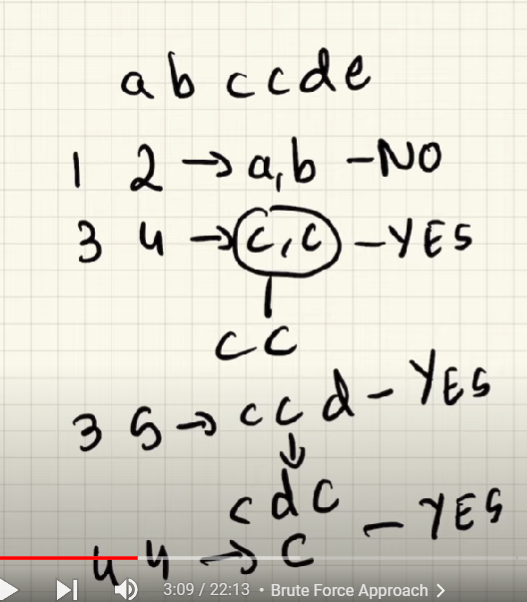 abccde
1 2 → a,b - NO
3 4 → c,c - YES
cc
3 5 → ccd - YES
cdc
4 4 → c - YES
3:09 / 22:13 • Brute Force Approach >